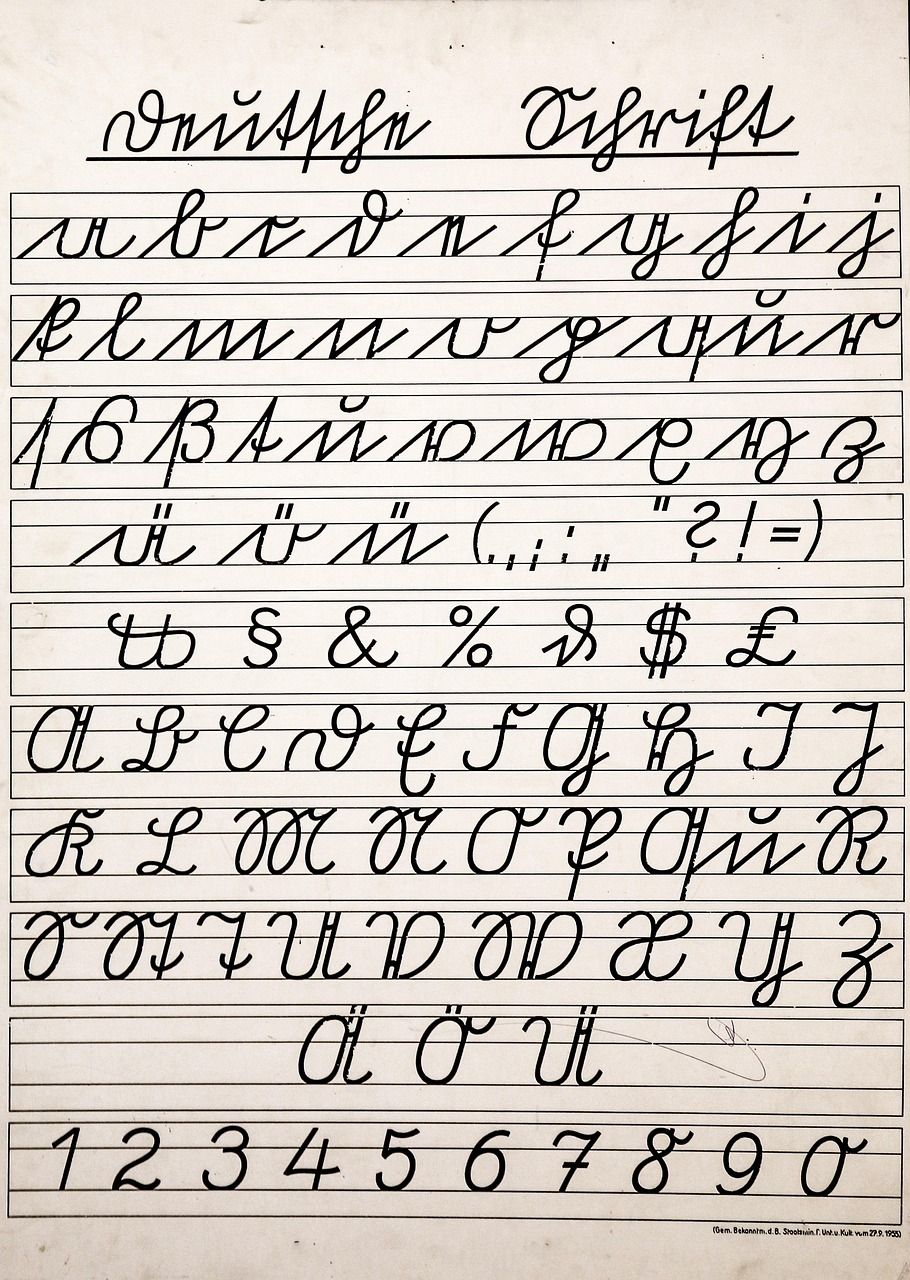 Deutsche Schrift
a b c d e f g h i j
k l m n o p qu r
ſ s ß t u v w x y z
ä ö ü (.,;:„ " ?!=)
℔ § & % ₰ $ £
A B C D E F G H I J
K L M N O P Qu R
S St T U V W X Y Z
Ä Ö Ü
1 2 3 4 5 6 7 8 9 0
(Gem. Bekanntm. d. B. Staatsmin. f. Unt. u. Kult. vom 27.9.1955)